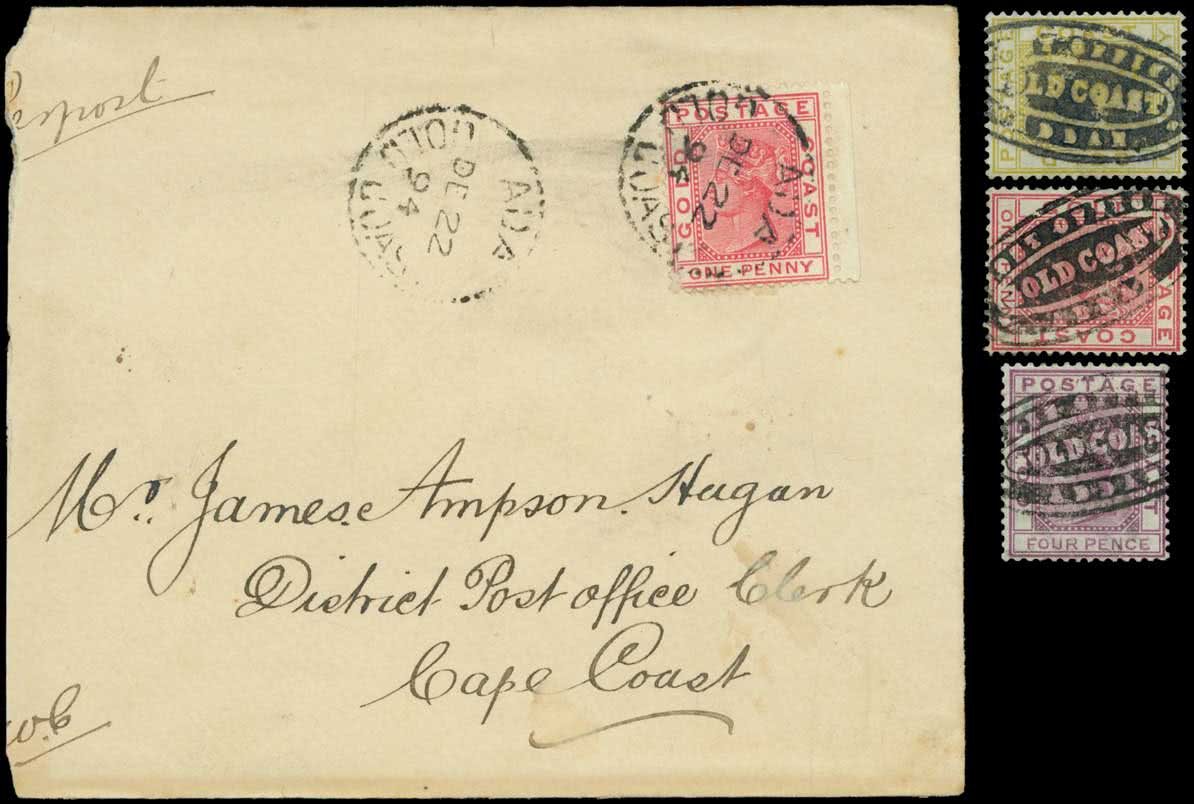 POSTAGE
GOLD COAST
ONE PENNY
ADA
DE 22
94
GOLD COAST
ADA
DE 22
94
GOLD COAST
Mr. James. Ampson. Hagan
District Post office Clerk
Cape Coast
COAST
OLD COAST
GOLD COAST
COAST
POSTAGE
GOLD COAST
FOUR PENCE